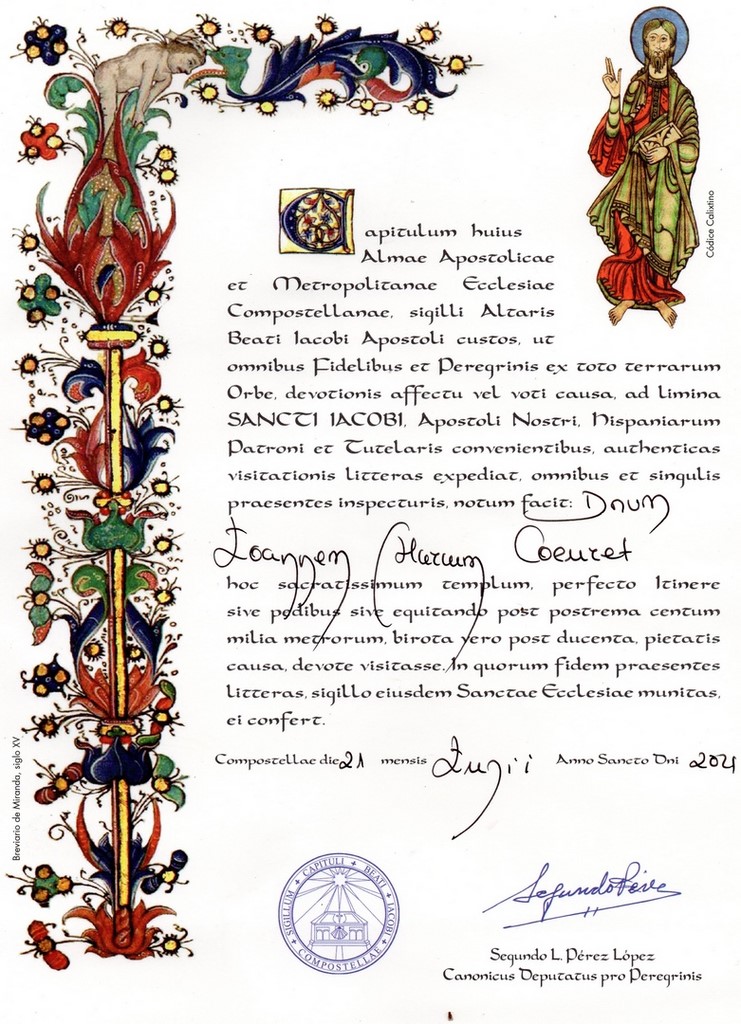 Códice Calixtino
Capitulum huius
Almae Apostolicae
et Metropolitanae Ecclesiae
Compostellanae, sigilli Altaris
Beati Iacobi Apostoli custos, ut
omnibus Fidelibus et Peregrinis ex toto terrarum
Orbe, devotionis affectu vel voti causa, ad limina
SANCTI IACOBI, Apostoli Nostri, Hispaniarum
Patroni et Tutelaris convenientibus, authenticas
visitationis litteras expediat, omnibus et singulis
praesentes inspecturis, notum facit: Dnum
Ioannem Coeuret
hoc sacratissimum templum, perfecto Itinere
sive pedibus sive equitando post postrema centum
milia metrorum, birota vero post ducenta, pietatis
causa, devote visitasse. In quorum fidem praesentes
litteras, sigillo eiusdem Sanctae Ecclesiae munitas,
ei confert.
Compostellae die 21 mensis Iunii Anno Sancto Dni 2021
Breviario de Miranda, siglo XV
SIGILLUM + CAPITULI + BEATI + IACOBI + COMPOSTELLAE +
Segundo Pérez
Segundo L. Pérez López
Canonicus Deputatus pro Peregrinis